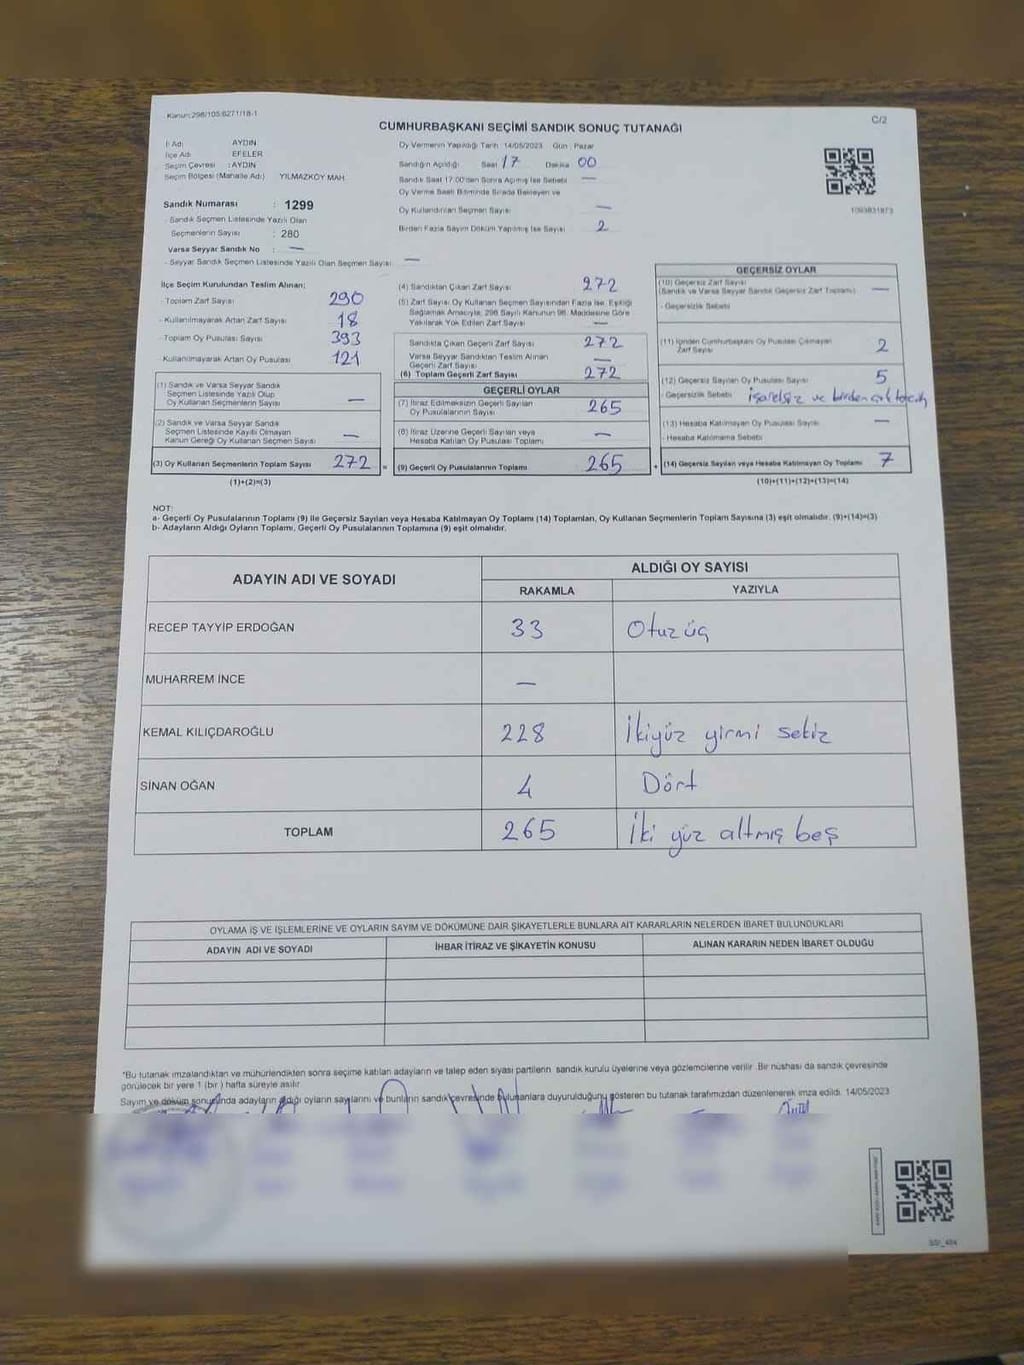 Kanun:298/105:6271/18-1
C/2
CUMHURBAŞKANI SEÇİMİ SANDIK SONUÇ TUTANAĞI
İl Adı : AYDIN
İlçe Adı : EFELER
Seçim Çevresi : AYDIN
Seçim Bölgesi (Mahalle Adı) : YILMAZKÖY MAH.
Oy Vermenin Yapıldığı Tarih 14/05/2023 Gün : Pazar
Sandığın Açıldığı Saat 17 Dakika 00
Sandık Saat 17.00'den Sonra Açılmış İse Sebebi —
Oy Verme Saati Bitiminde Sırada Bekleyen ve
Oy Kullandırılan Seçmen Sayısı —
Birden Fazla Sayım Döküm Yapılmış İse Sayısı 2
Sandık Numarası : 1299
- Sandık Seçmen Listesinde Yazılı Olan
Seçmenlerin Sayısı : 280
Varsa Seyyar Sandık No : —
- Seyyar Sandık Seçmen Listesinde Yazılı Olan Seçmen Sayısı —
İlçe Seçim Kurulundan Teslim Alınan;
- Toplam Zarf Sayısı 290
- Kullanılmayarak Artan Zarf Sayısı 18
- Toplam Oy Pusulası Sayısı 393
- Kullanılmayarak Artan Oy Pusulası 121
(1) Sandık ve Varsa Seyyar Sandık
Seçmen Listesinde Yazılı Olup
Oy Kullanan Seçmenlerin Sayısı —
(2) Sandık ve Varsa Seyyar Sandık
Seçmen Listesinde Kayıtlı Olmayan
Kanun Gereği Oy Kullanan Seçmen Sayısı —
(3) Oy Kullanan Seçmenlerin Toplam Sayısı 272
(1)+(2)=(3)
(4) Sandıktan Çıkan Zarf Sayısı 272
(5) Zarf Sayısı Oy Kullanan Seçmen Sayısından Fazla İse, Eşitliği
Sağlamak Amacıyla, 298 Sayılı Kanunun 98. Maddesine Göre
Yakılarak Yok Edilen Zarf Sayısı —
Sandıkta Çıkan Geçerli Zarf Sayısı 272
Varsa Seyyar Sandıktan Teslim Alınan
Geçerli Zarf Sayısı —
(6) Toplam Geçerli Zarf Sayısı 272
GEÇERLİ OYLAR
(7) İtiraz Edilmeksizin Geçerli Sayılan
Oy Pusulalarının Sayısı 265
(8) İtiraz Üzerine Geçerli Sayılan veya
Hesaba Katılan Oy Pusulası Toplamı —
= (9) Geçerli Oy Pusulalarının Toplamı 265
GEÇERSİZ OYLAR
(10) Geçersiz Zarf Sayısı
(Sandık ve Varsa Seyyar Sandık Geçersiz Zarf Toplamı) —
- Geçersizlik Sebebi
(11) İçinden Cumhurbaşkanı Oy Pusulası Çıkmayan
Zarf Sayısı 2
(12) Geçersiz Sayılan Oy Pusulası Sayısı 5
- Geçersizlik Sebebi işaretsiz ve birden çok tercih
(13) Hesaba Katılmayan Oy Pusulası Sayısı —
- Hesaba Katılmama Sebebi
+ (14) Geçersiz Sayılan veya Hesaba Katılmayan Oy Toplamı 7
(10)+(11)+(12)+(13)=(14)
1093831873
NOT:
a- Geçerli Oy Pusulalarının Toplamı (9) ile Geçersiz Sayılan veya Hesaba Katılmayan Oy Toplamı (14) Toplamları, Oy Kullanan Seçmenlerin Toplam Sayısına (3) eşit olmalıdır. (9)+(14)=(3)
b- Adayların Aldığı Oyların Toplamı, Geçerli Oy Pusulalarının Toplamına (9) eşit olmalıdır.
ADAYIN ADI VE SOYADI
ALDIĞI OY SAYISI
RAKAMLA YAZIYLA
RECEP TAYYİP ERDOĞAN 33 Otuzüç
MUHARREM İNCE —
KEMAL KILIÇDAROĞLU 228 İkiyüz yirmi sekiz
SİNAN OĞAN 4 Dört
TOPLAM 265 İki yüz altmış beş
OYLAMA İŞ VE İŞLEMLERİNE VE OYLARIN SAYIM VE DÖKÜMÜNE DAİR ŞİKAYETLERLE BUNLARA AİT KARARLARIN NELERDEN İBARET BULUNDUKLARI
ADAYIN ADI VE SOYADI İHBAR İTİRAZ VE ŞİKAYETİN KONUSU ALINAN KARARIN NEDEN İBARET OLDUĞU
*Bu tutanak imzalandıktan ve mühürlendikten sonra seçime katılan adayların ve talep eden siyasi partilerin sandık kurulu üyelerine veya gözlemcilerine verilir. Bir nüshası da sandık çevresinde
görülecek bir yere 1 (bir) hafta süreyle asılır.
Sayım ve döküm sonucunda adayların aldığı oyların sayılarını ve bunların sandık çevresinde bulunanlara duyurulduğunu gösteren bu tutanak tarafımızdan düzenlenerek imza edildi. 14/05/2023